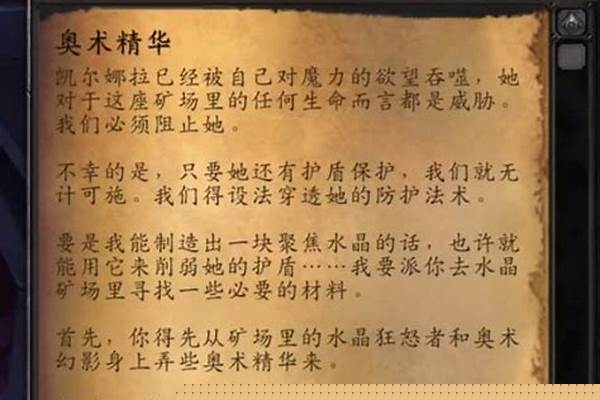 奥术精华
凯尔娜拉已经被自己对魔力的欲望吞噬，她
对于这座矿场里的任何生命而言都是威胁。
我们必须阻止她。
不幸的是，只要她还有护盾保护，我们就无
计可施。我们得设法穿透她的防护法术。
要是我能制造出一块聚焦水晶的话，也许就
能用它来削弱她的护盾……我要派你去水晶
矿场里寻找一些必要的材料。
首先，你得先从矿场里的水晶狂怒者和奥术
幻影身上弄些奥术精华来。